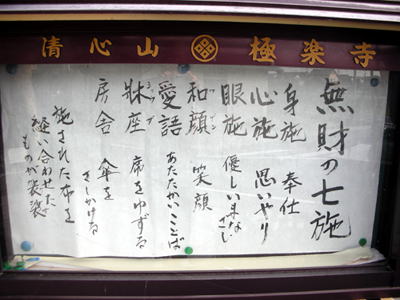 清心山 極楽寺
無財の七施
身施 奉仕
心施 思いやり
眼施 優しいまなざし
和顔 笑顔
愛語 あたたかいことば
牀座 席をゆずる
房舎 傘をさしかける
施された布を
縫い合わせた
ものが袈裟